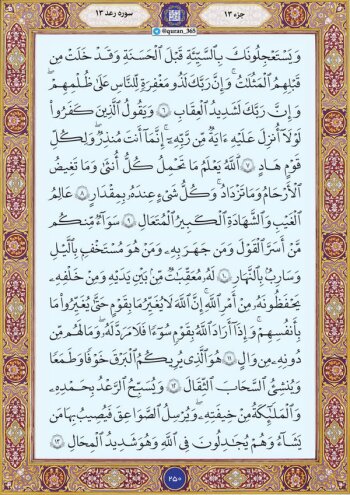 جزء ۱۳
@quran_365
سوره رعد ۱۳
وَيَسْتَعْجِلُونَكَ بِالسَّيِّئَةِ قَبْلَ الْحَسَنَةِ وَقَدْ خَلَتْ مِن
قَبْلِهِمُ الْمَثُلَاتُ ۗ وَإِنَّ رَبَّكَ لَذُو مَغْفِرَةٍ لِّلنَّاسِ عَلَىٰ ظُلْمِهِمْ ۖ
وَإِنَّ رَبَّكَ لَشَدِيدُ الْعِقَابِ ۝٦ وَيَقُولُ الَّذِينَ كَفَرُوا
لَوْلَا أُنزِلَ عَلَيْهِ آيَةٌ مِّن رَّبِّهِ ۗ إِنَّمَا أَنتَ مُنذِرٌ ۖ وَلِكُلِّ
قَوْمٍ هَادٍ ۝٧ اللَّهُ يَعْلَمُ مَا تَحْمِلُ كُلُّ أُنثَىٰ وَمَا تَغِيضُ
الْأَرْحَامُ وَمَا تَزْدَادُ ۖ وَكُلُّ شَيْءٍ عِندَهُ بِمِقْدَارٍ ۝٨ عَالِمُ
الْغَيْبِ وَالشَّهَادَةِ الْكَبِيرُ الْمُتَعَالِ ۝٩ سَوَاءٌ مِّنكُم
مَّنْ أَسَرَّ الْقَوْلَ وَمَن جَهَرَ بِهِ وَمَنْ هُوَ مُسْتَخْفٍ بِاللَّيْلِ
وَسَارِبٌ بِالنَّهَارِ ۝١٠ لَهُ مُعَقِّبَاتٌ مِّن بَيْنِ يَدَيْهِ وَمِنْ خَلْفِهِ
يَحْفَظُونَهُ مِنْ أَمْرِ اللَّهِ ۗ إِنَّ اللَّهَ لَا يُغَيِّرُ مَا بِقَوْمٍ حَتَّىٰ يُغَيِّرُوا مَا
بِأَنفُسِهِمْ ۗ وَإِذَا أَرَادَ اللَّهُ بِقَوْمٍ سُوءًا فَلَا مَرَدَّ لَهُ ۚ وَمَا لَهُم مِّن
دُونِهِ مِن وَالٍ ۝١١ هُوَ الَّذِي يُرِيكُمُ الْبَرْقَ خَوْفًا وَطَمَعًا
وَيُنشِئُ السَّحَابَ الثِّقَالَ ۝١٢ وَيُسَبِّحُ الرَّعْدُ بِحَمْدِهِ
وَالْمَلَائِكَةُ مِنْ خِيفَتِهِ وَيُرْسِلُ الصَّوَاعِقَ فَيُصِيبُ بِهَا مَن
يَشَاءُ وَهُمْ يُجَادِلُونَ فِي اللَّهِ وَهُوَ شَدِيدُ الْمِحَالِ ۝١٣
۲۵۰